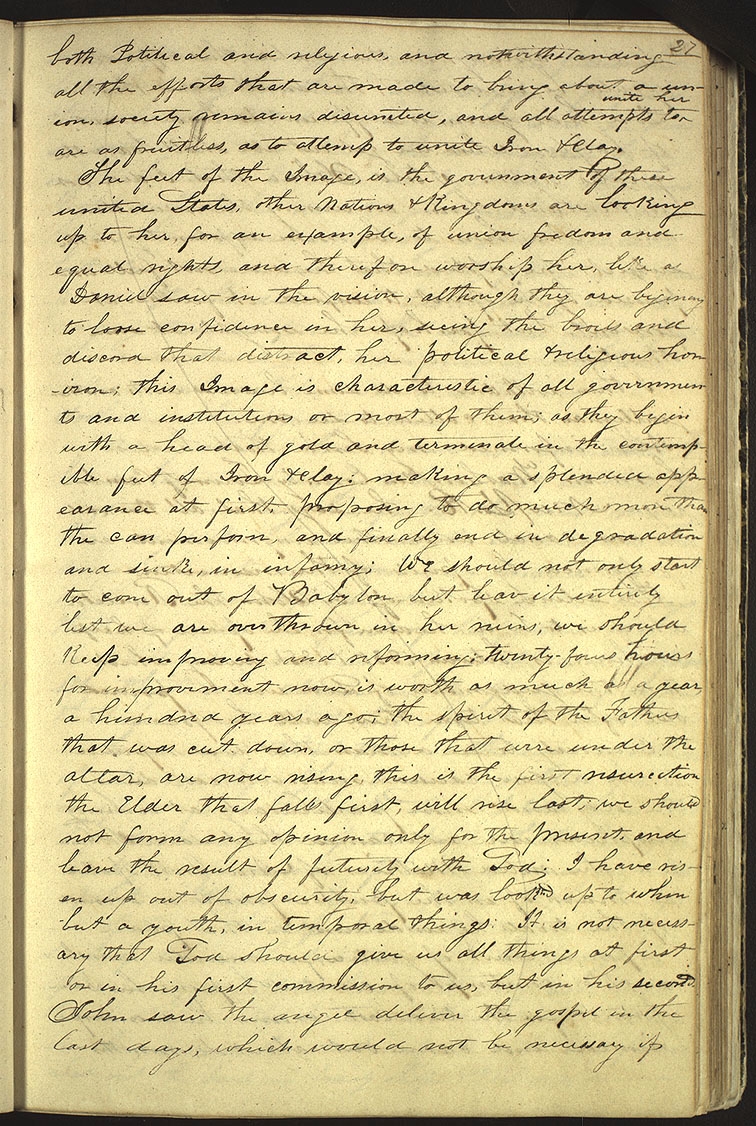 27
both Political and religious, and notwithstanding
all the efforts that are made to bring about a un-
ion, society remains disunited, and all attempts to unite her
are as fruitless, as to attemp to unite Iron & Clay.
The feet of the Image, is the government of these
united States, other Nations & Kingdoms are looking
up to her, for an example, of union fredom and
equal rights, and therefore worship her, like as
Daniel saw in the vision, although they are begining
to loose confidence in her, seeing the broils and
discord that distract, her political & religious hori-
-zon; this Image is characteristic of all governmen-
ts and institutions or most of them; as they begin
with a head of gold and terminate in the contemp-
ible feet of Iron & clay: making a splended app-
earance at first, proposing to do much more than
the can perform, and finally end in degradation
and sink, in infamy; We should not only start
to com out of Babylon but leav it entirely
lest we are overthrown in her ruins, we should
keep improving and reforming; twenty-four hours
for improvement now is worth as much as a year
a hundred years ago; the spirit of the Fathers
that was cut down, or those that were under the
altar, are now rising, this is the first resurection
the Elder that falls first, will rise last; we should
not form any opinion only for the present, and
leave the result of futurity with God; I have ris-
en up out of obscurity, but was looked up to when
but a youth, in temporal things: It is not necess-
ary that God should give us all things at first
or in his first commission to us, but in his second.
John saw the angel deliver the gospel in the
last days, which would not be necessary if